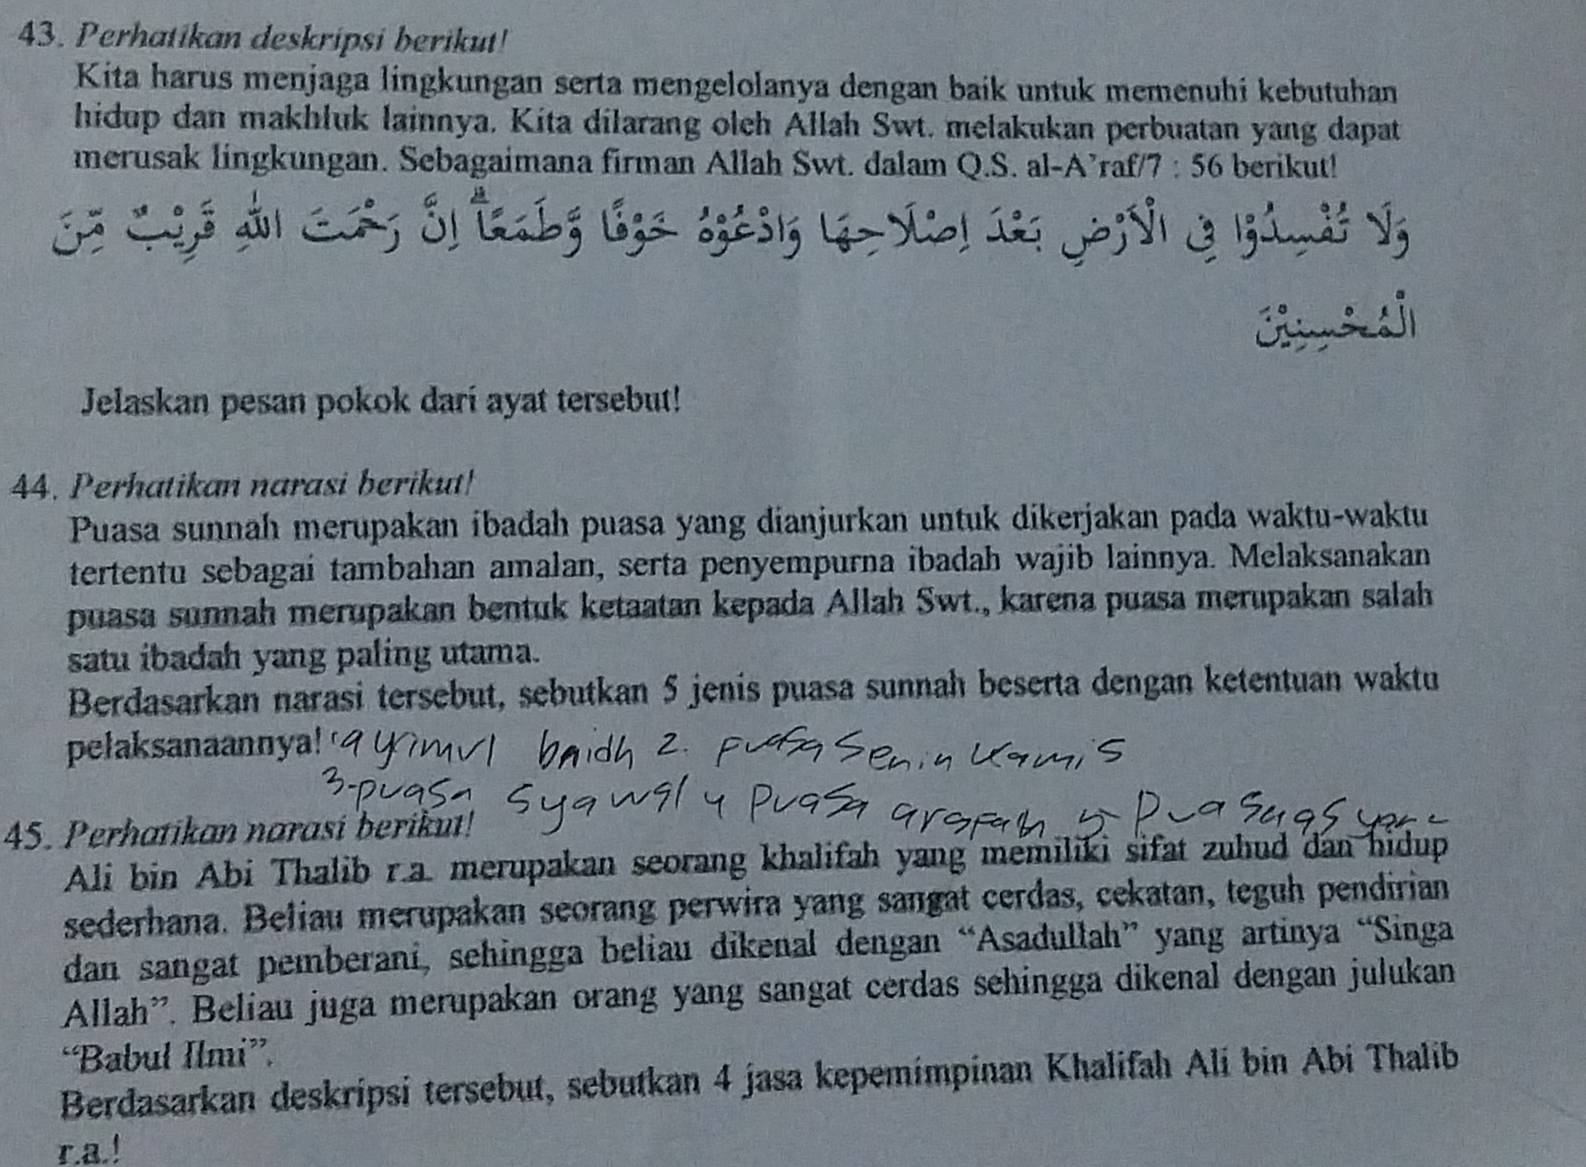 43. Perhatikan deskripsi berikut!
Kita harus menjaga lingkungan serta mengelolanya dengan baik untuk memenuhi kebutuhan
hidup dan makhluk lainnya. Kita dilarang oleh Allah Swt. melakukan perbuatan yang dapat
merusak lingkungan. Sebagaimana firman Allah Swt. dalam Q.S. al-A’raf/7 : 56 berikut!
وَلَا تُفْسِدُوْا فِى الْاَرْضِ بَعْدَ اِصْلَاحِهَا وَادْعُوْهُ خَوْفًا وَّطَمَعًاۗ اِنَّ رَحْمَتَ اللّٰهِ قَرِيْبٌ مِّنَ
الْمُحْسِنِيْنَ
Jelaskan pesan pokok dari ayat tersebut!
44. Perhatikan narasi berikut!
Puasa sunnah merupakan ibadah puasa yang dianjurkan untuk dikerjakan pada waktu-waktu
tertentu sebagai tambahan amalan, serta penyempurna ibadah wajib lainnya. Melaksanakan
puasa sunnah merupakan bentuk ketaatan kepada Allah Swt., karena puasa merupakan salah
satu ibadah yang paling utama.
Berdasarkan narasi tersebut, sebutkan 5 jenis puasa sunnah beserta dengan ketentuan waktu
pelaksanaannya! ayimul baidh 2. puasa Senin Kamis
3-puasa Syawal 4 Puasa arafah 5-
45. Perhatikan narasi berikut!
Ali bin Abi Thalib r.a. merupakan seorang khalifah yang memiliki sifat zuhud dan hidup
sederhana. Beliau merupakan seorang perwira yang sangat cerdas, cekatan, teguh pendirian
dan sangat pemberani, sehingga beliau dikenal dengan “Asadullah” yang artinya “Singa
Allah”. Beliau juga merupakan orang yang sangat cerdas sehingga dikenal dengan julukan
“Babul Ilmi”.
Berdasarkan deskripsi tersebut, sebutkan 4 jasa kepemimpinan Khalifah Ali bin Abi Thalib
r.a.!